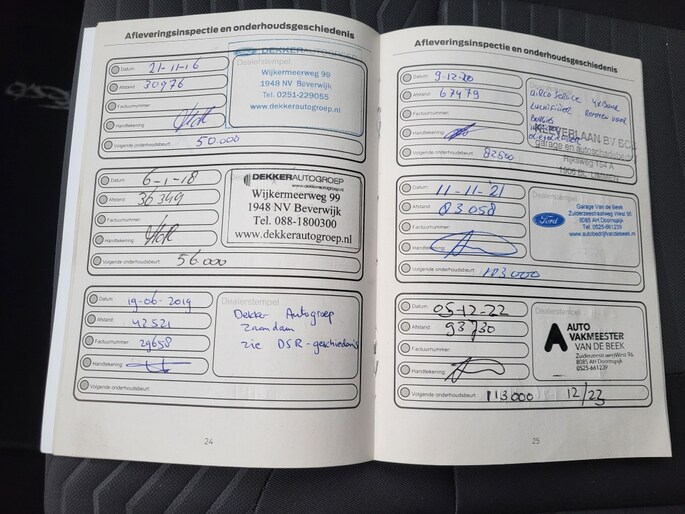 Afleveringsinspectie en onderhoudsgeschiedenis
Datum: 21-11-16
Afstand: 30976
Factuurnummer:
Handtekening:
Volgende onderhoudsbeurt: 50.000
Dealerstempel
DEKKERAUTOGROEP
Wijkermeerweg 99
1948 NV Beverwijk
Tel. 0251-229055
www.dekkerautogroep.nl
Datum: 6-1-18
Afstand: 36349
Factuurnummer:
Handtekening:
Volgende onderhoudsbeurt: 56.000
DEKKERAUTOGROEP
www.dekkerautogroep.nl
Wijkermeerweg 99
1948 NV Beverwijk
Tel. 088-1800300
www.dekkerautogroep.nl
Datum: 19-06-2019
Afstand: 42521
Factuurnummer: 29658
Handtekening:
Volgende onderhoudsbeurt:
Dealerstempel
Dekker Autogroep
Zaandam
zie DSR-geschiedenis
24
Afleveringsinspectie en onderhoudsgeschiedenis
Datum: 9-12-20
Afstand: 67479
Factuurnummer:
Handtekening:
Volgende onderhoudsbeurt: 82500
airco service
Luchtfilter
Bougies
garage en autoschade
Rijksweg 154 A
Datum: 11-11-21
Afstand: 83058
Factuurnummer:
Handtekening:
Volgende onderhoudsbeurt: 103000
Dealerstempel
Ford
Garage Van de Beek
Zuiderzeestraatweg West 96
8085 AH Doornspijk
Tel. 0525-661239
www.autobedrijfvandebeek.nl
Datum: 05-12-22
Afstand: 93730
Factuurnummer:
Handtekening:
Volgende onderhoudsbeurt: 113000 12/23
Dealerstempel
AUTO
VAKMEESTER
VAN DE BEEK
Zuiderzeestraatweg West 96
8085 AH Doornspijk
0525-661239
25